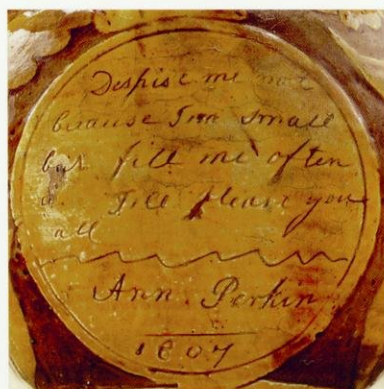 Despise me not
because I'm small
but fill me often
I'll please you
all
Ann Perkin
1807